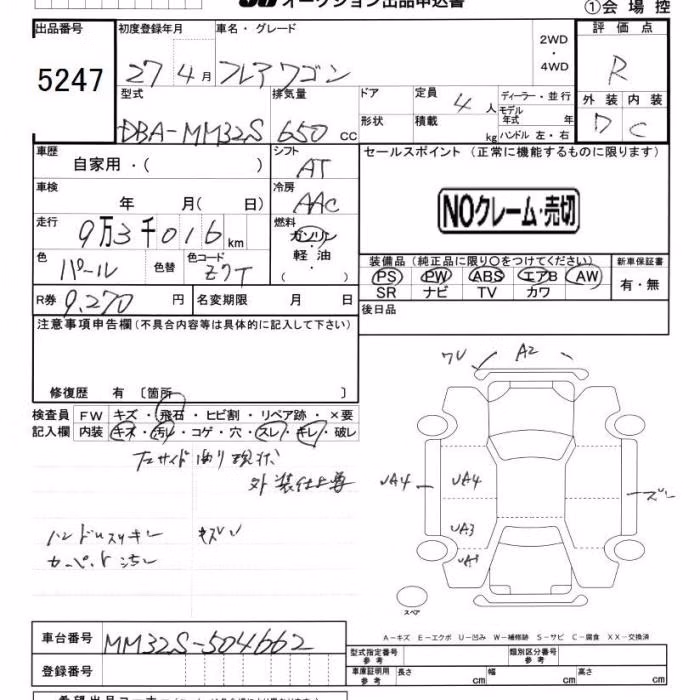 オークション出品申込書
①会場控
出品番号 初度登録年月 車名・グレード 2WD・4WD 評価点
5247 27 4月 フレアワゴン R
型式 排気量 ドア 定員 4人 ディーラー・並行 外装 内装
モデル年式 年
DBA-MM32S 650cc 形状 積載 kg ハンドル 左・右 D C
車歴 自家用・( ) シフト AT セールスポイント (正常に機能するものに限ります)
車検 年 月( 日) 冷房 AAC
NOクレーム・売切
走行 9万3千016km 燃料 ガソリン・軽油・( )
色 パール 色替 色コード Z7T
装備品 (純正品に限り○をつけてください) 新車保証書
PS PW ABS エアB AW 有・無
SR ナビ TV カワ
R券 9,270円 名変期限 月 日 後日品
注意事項申告欄(不具合内容等は具体的に記入して下さい)
修復歴 有 〔箇所 〕
検査員 FW キズ・飛石・ヒビ割・リペア跡・×要
記入欄 内装 キズ・汚れ・コゲ・穴・スレ・キレ・破レ
ワレ A2
外装仕上車
UA4 UA4 スレ
UA3
UA1
ハンドルスリキレ キズレ
カーペット汚レ
スペア
A-キズ E-エクボ U-凹み W-補修跡 S-サビ C-腐食 XX-交換済
車台番号 MM32S-504662
登録番号
型式指定番号 参考 類別区分番号 参考
車庫証明用 参考 長さ cm 幅 cm 高さ cm